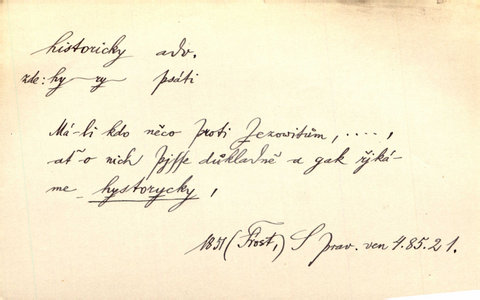 historicky adv.
zde: hy—ry— psáti
Má-li kdo něco proti Jezowitům, . . . . ,
ať o nich pjsse důkladně a gak řjká-
me hystorycky,
1831 (Frost,) S prav. ven 4.85.21.